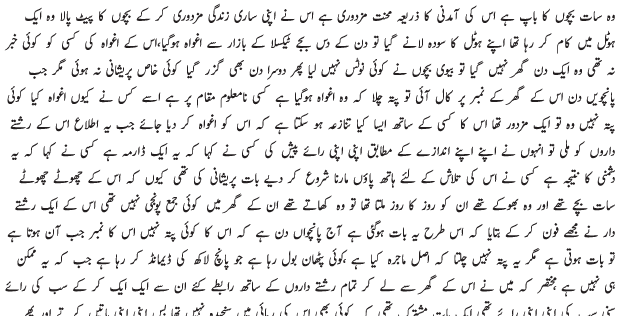 وہ سات بچوں کا باپ ہے اس کی آمدنی کا ذریعہ محنت مزدوری ہے اس نے اپنی ساری زندگی مزدوری کر کے بچوں کا پیٹ پالا وہ ایک
ہوٹل میں کام کر رہا تھا اپنے ہوٹل کا سودہ لانے گیا تو دن کے دس بجے ٹیکسلا کے بازار سے اغواہ ہوگیا،اس کے اغواہ کی کسی کو کوئی خبر
نہ تھی وہ ایک دن گھر نہیں گیا تو بیوی بچوں نے کوئی نوٹس نہیں لیا پھر دوسرا دن بھی گزر گیا کوئی خاص پریشانی نہ ہوئی مگر جب
پانچویں دن اس کے گھر کے نمبر پر کال آئی تو پتہ چلا کہ وہ اغواہ ہوگیا ہے کسی نامعلوم مقام پر ہے اسے کس نے کیوں اغواہ کیا کوئی
پتہ نہیں وہ تو ایک مزدور تھا اس کا کسی کے ساتھ ایسا کیا تنازعہ ہو سکتا ہے کہ اس کو اغواہ کر دیا جائے جب یہ اطلاع اس کے رشتے
داروں کو ملی تو انہوں نے اپنے اپنے اندازے کے مطابق اپنی اپنی رائے پیش کی کسی نے کہا کہ یہ ایک ڈارمہ ہے کسی نے کہا کہ یہ
دشمنی کا نتیجہ ہے کسی نے اس کی تلاش کے لئے ہاتھ پاؤں مارنا شروع کر دیے بات پریشانی کی تھی کیوں کہ اس کے چھوٹے چھوٹے
سات بچے تھے اور وہ بھوکے تھے ان کو روز کا روز ملتا تھا تو وہ کھاتے تھے ان کے گھر میں کوئی جمع پونجی نہیں تھی اس کے ایک رشتے
دار نے مجھے فون کر کے بتایا کہ اس طرح یہ بات ہوگئی ہے آج پانچواں دن ہے کہ اس کا کوئی پتہ نہیں اس کا نمبر جب آن ہوتا ہے
تو بات ہوتی ہے مگر یہ پتہ نہیں چلتا کہ اصل ماجرہ کیا ہے ،کوئی پٹھان بول رہا ہے جو پانچ لاکھ کی ڈیمانڈ کر رہا ہے جب کہ یہ ممکن
ہی نہیں ہے مختصر کہ میں نے اس کے گھر سے لے کر تمام رشتے داروں کے ساتھ رابطے کئے ان سے ایک ایک کر کے سب کی رائے
سنی سب کی اپنی اپنی رائے تھی ایک بات مشترک تھی کہ کوئی بھی اس کی رہائی میں سنجیدہ نہیں تھا بس اپنی اپنی باتیں کرتے اور پھر